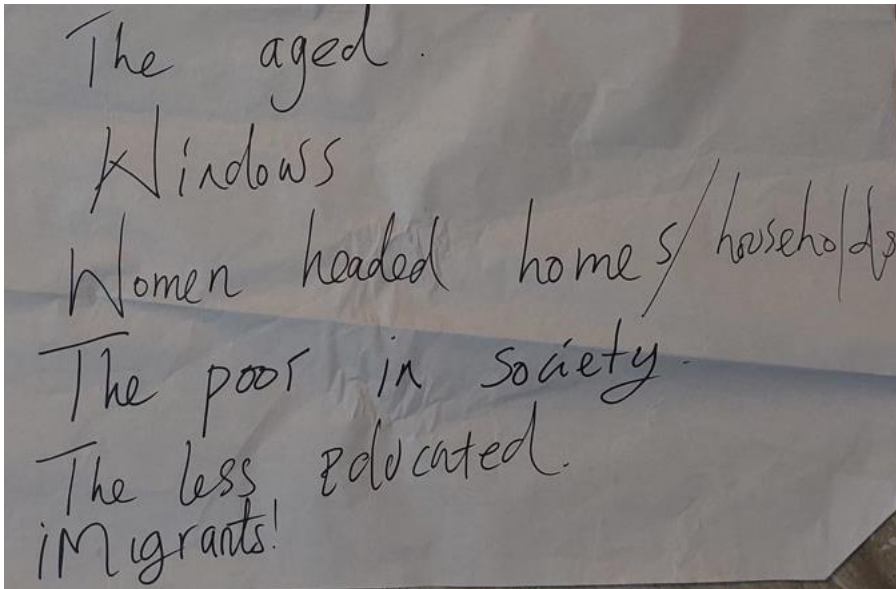 The aged.
Windows
Women headed homes/households
The poor in society.
The less educated.
iMigrants!